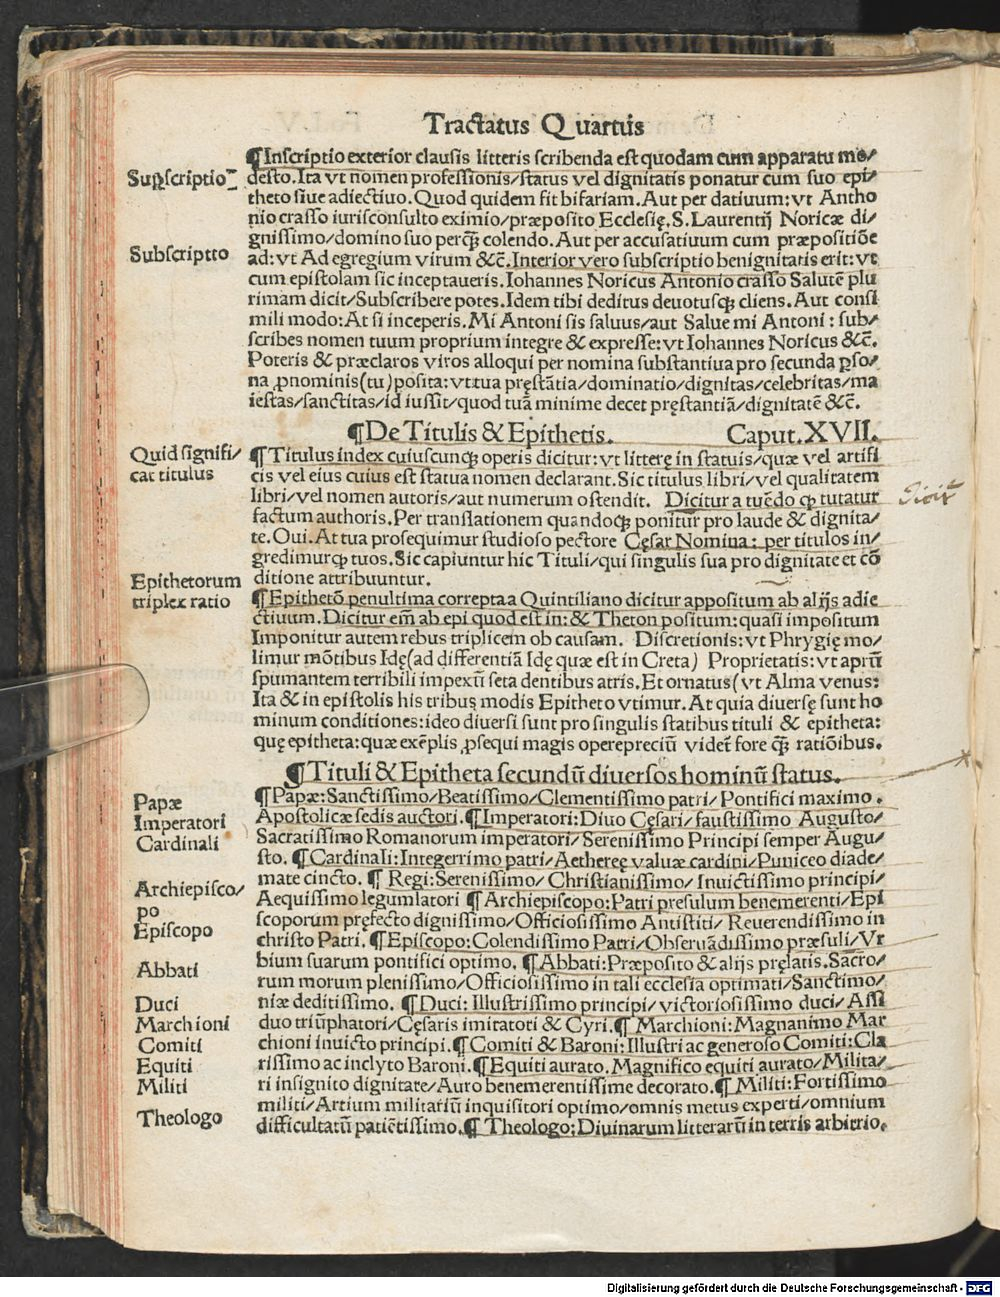 Tractatus Quartus
¶Inscriptio exterior clausis litteris scribenda est quodam cum apparatu mo⸗
Suꝑscriptio
desto. Ita vt nomen professionis/status vel dignitatis ponatur cum suo epi⸗
theto siue adiectiuo. Quod quidem fit bifariam. Aut per datiuum: vt Antho
nio crasso iurisconsulto eximio/præposito Ecclesię. S. Laurentij Noricæ di⸗
gnissimo/domino suo perꝙ̃ colendo. Aut per accusatiuum cum præpositiõe
Subscriptto
ad: vt Ad egregium virum &c̃. Interior vero subscriptio benignitatis erit: vt
cum epistolam sic inceptaueris. Iohannes Noricus Antonio crasso Salutẽ plu
rimam dicit/Subscribere potes. Idem tibi deditus deuotusꝗ cliens. Aut consi
mili modo: At si inceperis. Mi Antoni sis saluus/aut Salue mi Antoni: sub⸗
scribes nomen tuum proprium integre & expresse: vt Iohannes Noricus &c̃.
Poteris & præclaros viros alloqui per nomina substantiua pro secunda ꝑso⸗
na ꝓnominis (tu) posita: vt tua pręstãtia/dominatio/dignitas/celebritas/ma
iestas/sanctitas/id iussit/quod tuã minime decet pręstantiã/dignitatẽ &c̃.
¶De Titulis & Epithetis. Caput. XVII.
Quid signifi⸗
cat titulus
¶Titulus index cuiuscunꝗ operis dicitur: vt litterę in statuis/quæ vel artifi
cis vel eius cuius est statua nomen declarant. Sic titulus libri/vel qualitatem
libri/vel nomen autoris/aut numerum ostendit. Dicitur a tuẽdo ꝙ tutatur
factum authoris. Per translationem quandoꝗ ponitur pro laude & dignita⸗
te. Oui. At tua prosequimur studioso pectore Cęsar Nomina: per titulos in⸗
gredimurꝗ tuos. Sic capiuntur hic Tituli/qui singulis sua pro dignitate et cõ
ditione attribuuntur.
Epithetorum
triplex ratio
¶Epithetõ penultima correpta a Quintiliano dicitur appositum ab alijs adie
ctiuum. Dicitur em̃ ab epi quod est in: & Theton positum: quasi impositum
Imponitur autem rebus triplicem ob causam. Discretionis: vt Phrygię mo⸗
limur mõtibus Idę (ad differentiã Idę quæ est in Creta) Proprietatis: vt aprũ
spumantem terribili impexũ seta dentibus atris. Et ornatus (vt Alma venus:
Ita & in epistolis his tribus modis Epitheto vtimur. At quia diuersę sunt ho
minum conditiones: ideo diuersi sunt pro singulis statibus tituli & epitheta:
quę epitheta: quæ exẽplis ꝓsequi magis operepreciũ videt̃ fore ꝙ̃ ratiõibus.
¶Tituli & Epitheta secundũ diuersos hominũ status.
Papæ
Imperatori
Cardinali
¶Papæ: Sanctissimo/Beatissimo/Clementissimo patri/Pontifici maximo.
Apostolicæ sedis auctori. ¶Imperatori: Diuo Cęsari/faustissimo Augusto/
Sacratissimo Romanorum imperatori/Serenissimo Principi semper Augu⸗
sto. ¶Cardinali: Integerrimo patri/Aethereę valuæ cardini/Puniceo diade⸗
mate cincto. ¶ Regi: Serenissimo/Christianissimo/Inuictissimo principi/
Archiepisco⸗
po
Aequissimo legumlatori ¶Archiepiscopo: Patri presulum benemerenti/Epi
scoporum pręfecto dignissimo/Officiosissimo Antistiti/Reuerendissimo in
Episcopo
christo Patri. ¶Episcopo: Colendissimo Patri/Obseruãdissimo præsuli/Vr
bium suarum pontifici optimo. ¶Abbati: Præposito & alijs pręlatis. Sacro⸗
Abbati
rum morum plenissimo/Officiosissimo in tali ecclesia optimati/Sanctimo/
Duci
niæ deditissimo. ¶Duci: Illustrissimo principi/victoriosissimo duci/Assi
Marchioni
duo triũphatori/Cęsaris imitatori & Cyri. ¶ Marchioni: Magnanimo Mar
Comiti
chioni inuicto principi. ¶Comiti & Baroni: Illustri ac generoso Comiti: Cla
Equiti
rissimo ac inclyto Baroni. ¶Equiti aurato. Magnifico equiti aurato/Milita⸗
Militi
ri insignito dignitate/Auro benemerentissime decorato. ¶Militi: Fortissimo
militi/Artium militariũ inquisitori optimo/omnis metus experti/omnium
Theologo
difficultatũ patiẽtissimo. ¶ Theologo: Diuinarum litterarũ in terris arbitrio.
Digitalisierung gefördert durch die Deutsche Forschungsgemeinschaft - DFG